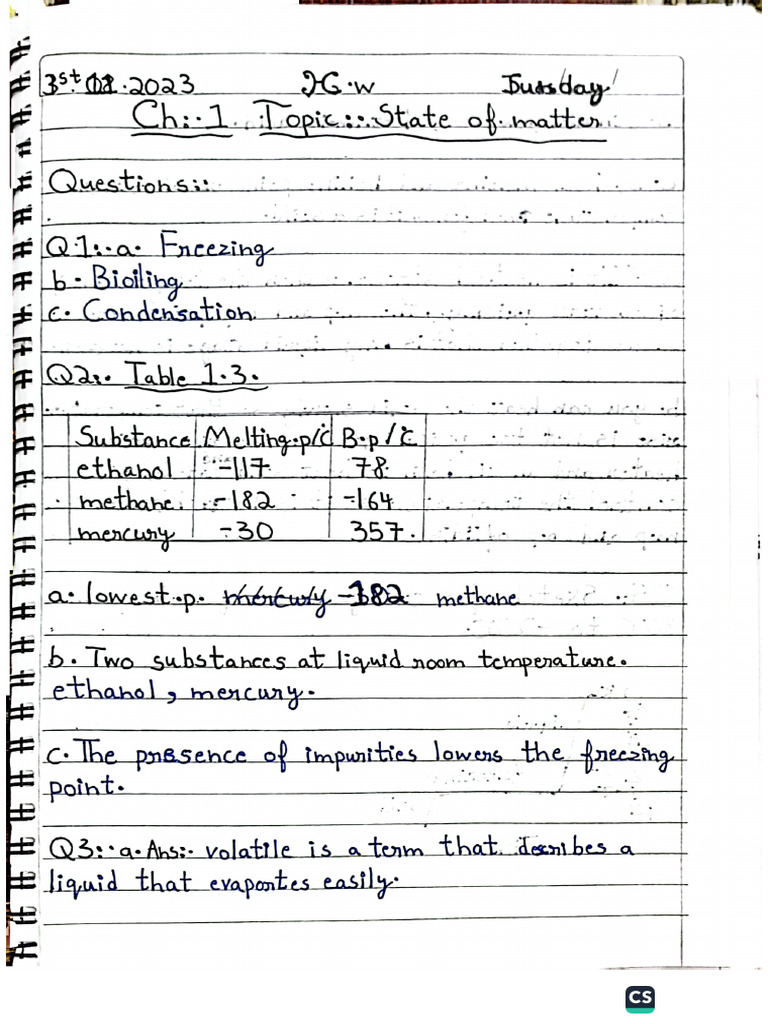 3st .2023 H.W Tuesday
Ch:-1 Topic:: State of matter
Questions::
Q1:-a. Freezing
b. Bioiling
c. Condensation
Q2:. Table 1.3.
Substance Melting.p/c B.p/c
ethanol -117 78
methane. -182 -164
mercury -30 357.
a. lowest.p. mercury -182 methane
b. Two substances at liquid room temperature.
ethanol, mercury.
c. The presence of impurities lowers the freezing
point.
Q3:-a.Ans:- volatile is a term that describes a
liquid that evaportes easily.
CS